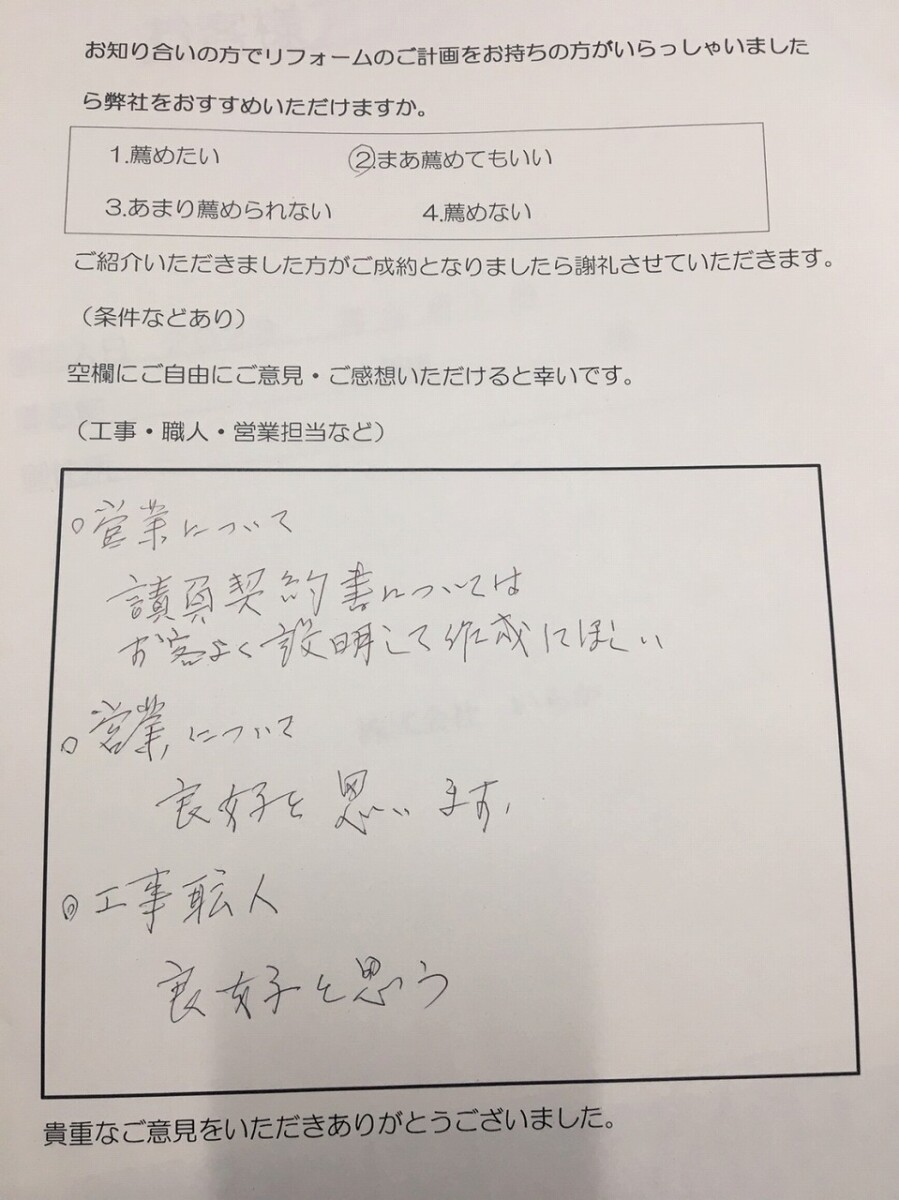 お知り合いの方でリフォームのご計画をお持ちの方がいらっしゃいました
ら弊社をおすすめいただけますか。
1.薦めたい　②.まあ薦めてもいい
3.あまり薦められない　4.薦めない
ご紹介いただきました方がご成約となりましたら謝礼させていただきます。
（条件などあり）
空欄にご自由にご意見・ご感想いただけると幸いです。
（工事・職人・営業担当など）
○営業について
請負契約書については
お客よく説明して作成してほしい
○営業について
良好と思います、
◎工事転人
良好と思う
貴重なご意見をいただきありがとうございました。